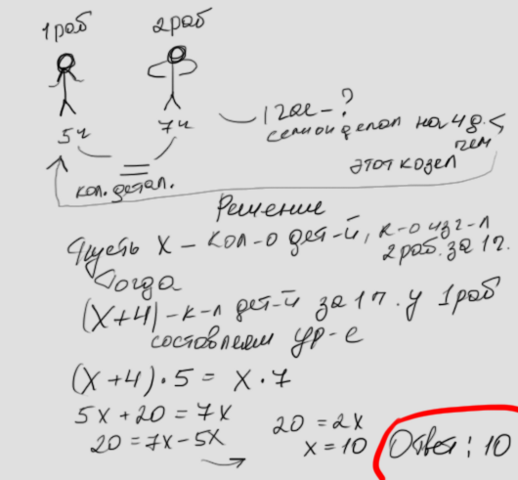 1 раб 2 раб
5ч 7ч
1 час - ?
если он делал на 4 д. <
чем
этот козел
=
кол. детал.
Решение
Пусть x - кол-о дет-й, к-о изг-л
2 раб. за 1 ч.
Тогда
(x+4) - к-л дет-й за 1 ч. у 1 раб
составляем ур-е
(x+4) · 5 = x · 7
5x + 20 = 7x
20 = 7x - 5x
20 = 2x
x = 10
Ответ: 10